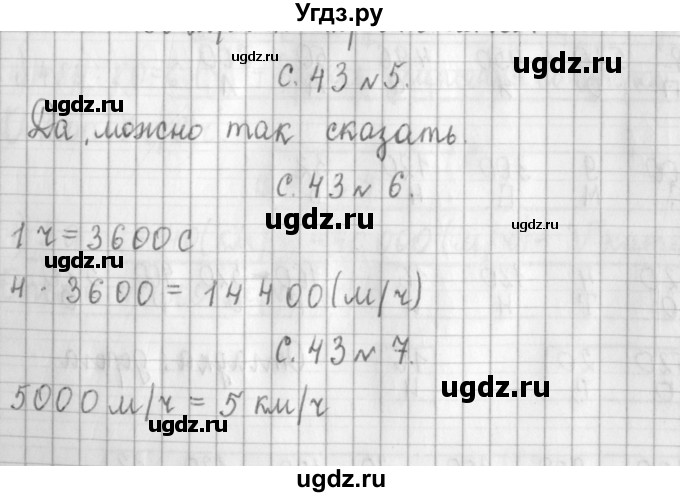 Угдз.ру
ugdz.ru
с. 43 № 5.
ugdz.ru ugdz.ru
Да, можно так сказать.
с. 43 № 6.
ugdz.ru ugdz.ru
1 ч = 3600 с
ugdz.ru
4 · 3600 = 14 400 (м/ч)
с. 43 № 7.
ugdz.ru
5000 м/ч = 5 км/ч
ugdz.ru
ugdz.ru